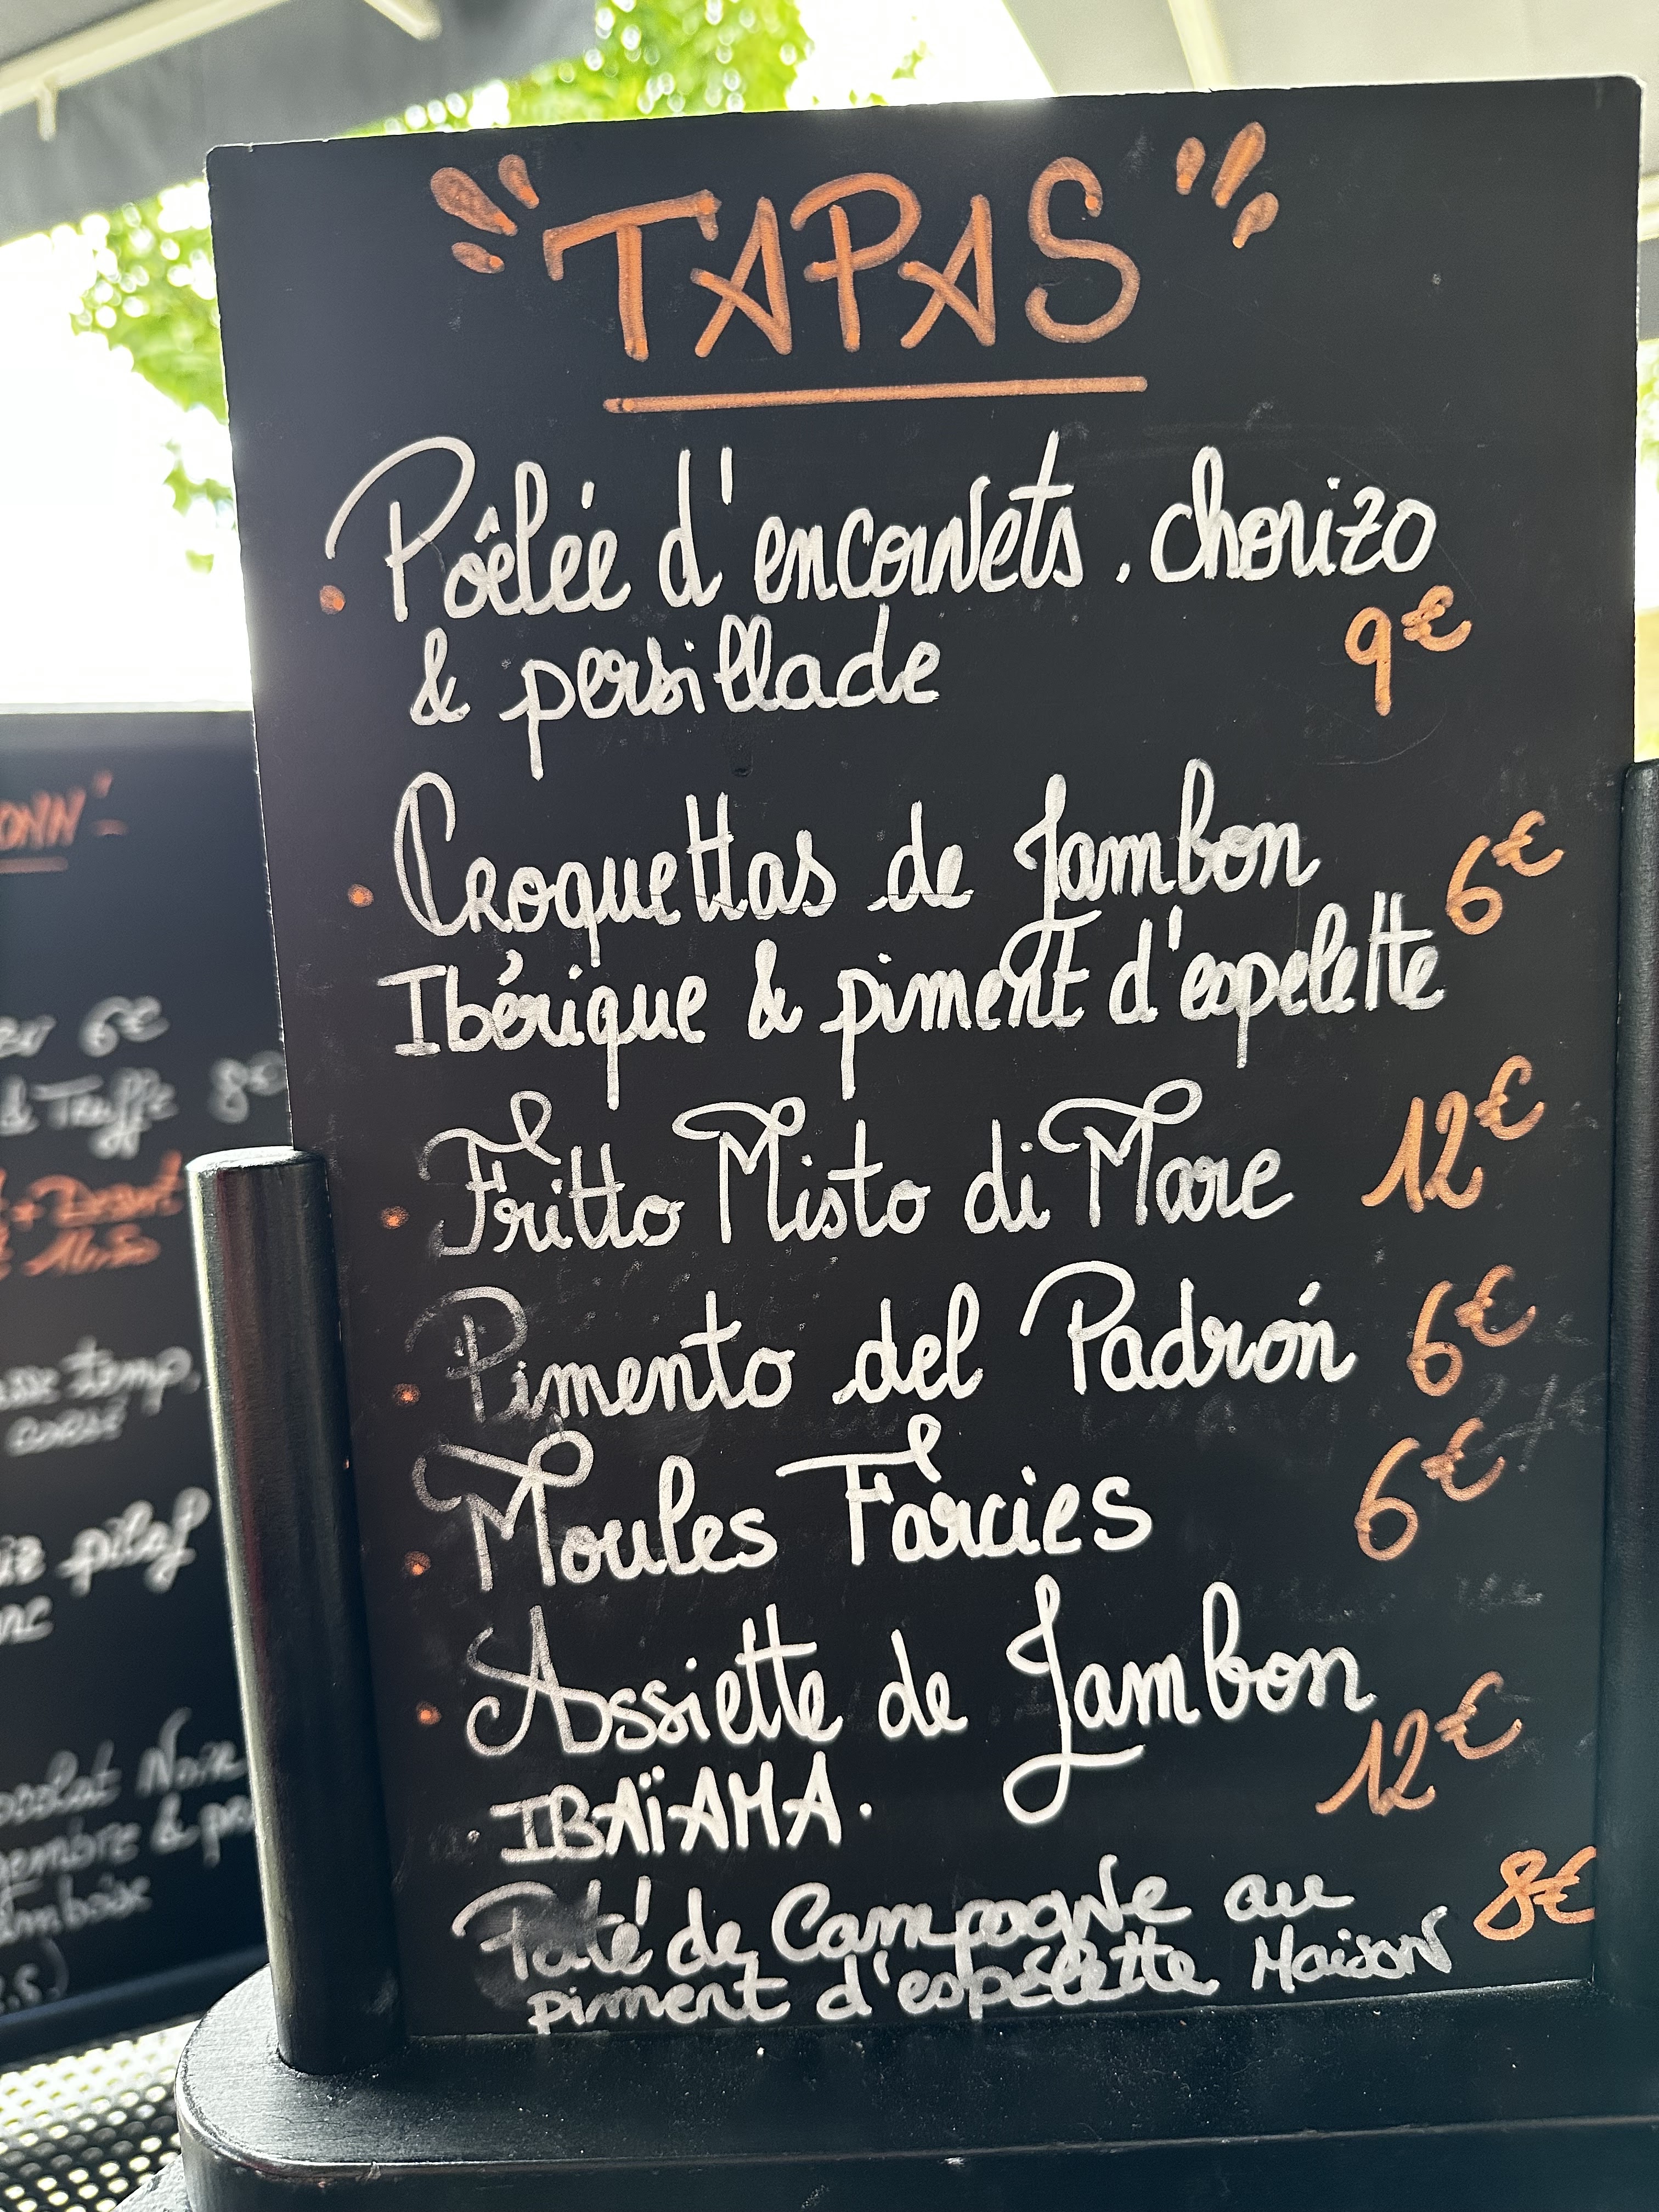 TAPAS
Poêlée d'encornets. chorizo
& persillade 9€
Croquettas de Jambon 6€
Ibérique & piment d'espelette
Fritto Misto di Mare 12€
Pimento del Padrón 6€
Moules Farcies 6€
Assiette de Jambon
IBAÏAMA. 12€
Paté de Campagne au 8€
piment d'espélette Maison
6€
& Truffe 8€
+ Dessert
16,50
temp.
corsé
pilaf
Noir
&